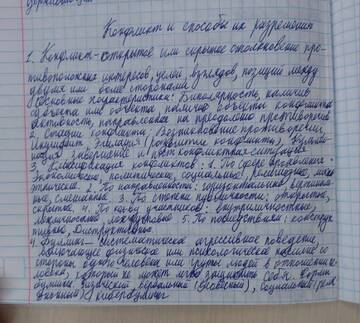 Конфликт и способы их разрешения
1. Конфликт - открытое или скрытое столкновение про-
тивоположных интересов, целей, взглядов, позиций между
двумя или более сторонами.
Основные характеристики: Биполярность, наличие
субъекта или объекта
активность, направленная на преодоление противоречий
2. Стадии конфликта: Возникновение противоречия,
Инцидент, Эскалация (развитие конфликта), Кульми-
нация завершение и постконфликтная ситуация
3. Классификация конфликтов: 1. По сфере проявления -
Экономические, политические, социальные, религиозные, меж-
этнические. 2. По направленности: горизонтальные, вертикаль-
ные, смешанные 3. По степени публичности: открытые,
скрытые 4. По кругу участников - внутриличностные,
межличностные, международные 5. По последствиям: конструк-
тивные, Деструктивные
4. Буллинг - систематическое агрессивное поведение,
включающее физическое или психологическое насилие со
стороны одного человека или группы людей в отношении че-
ловека, который не может легко защитить себя. Формы
буллинга: физический, вербальный (словесный), социальный
и кибербуллинг